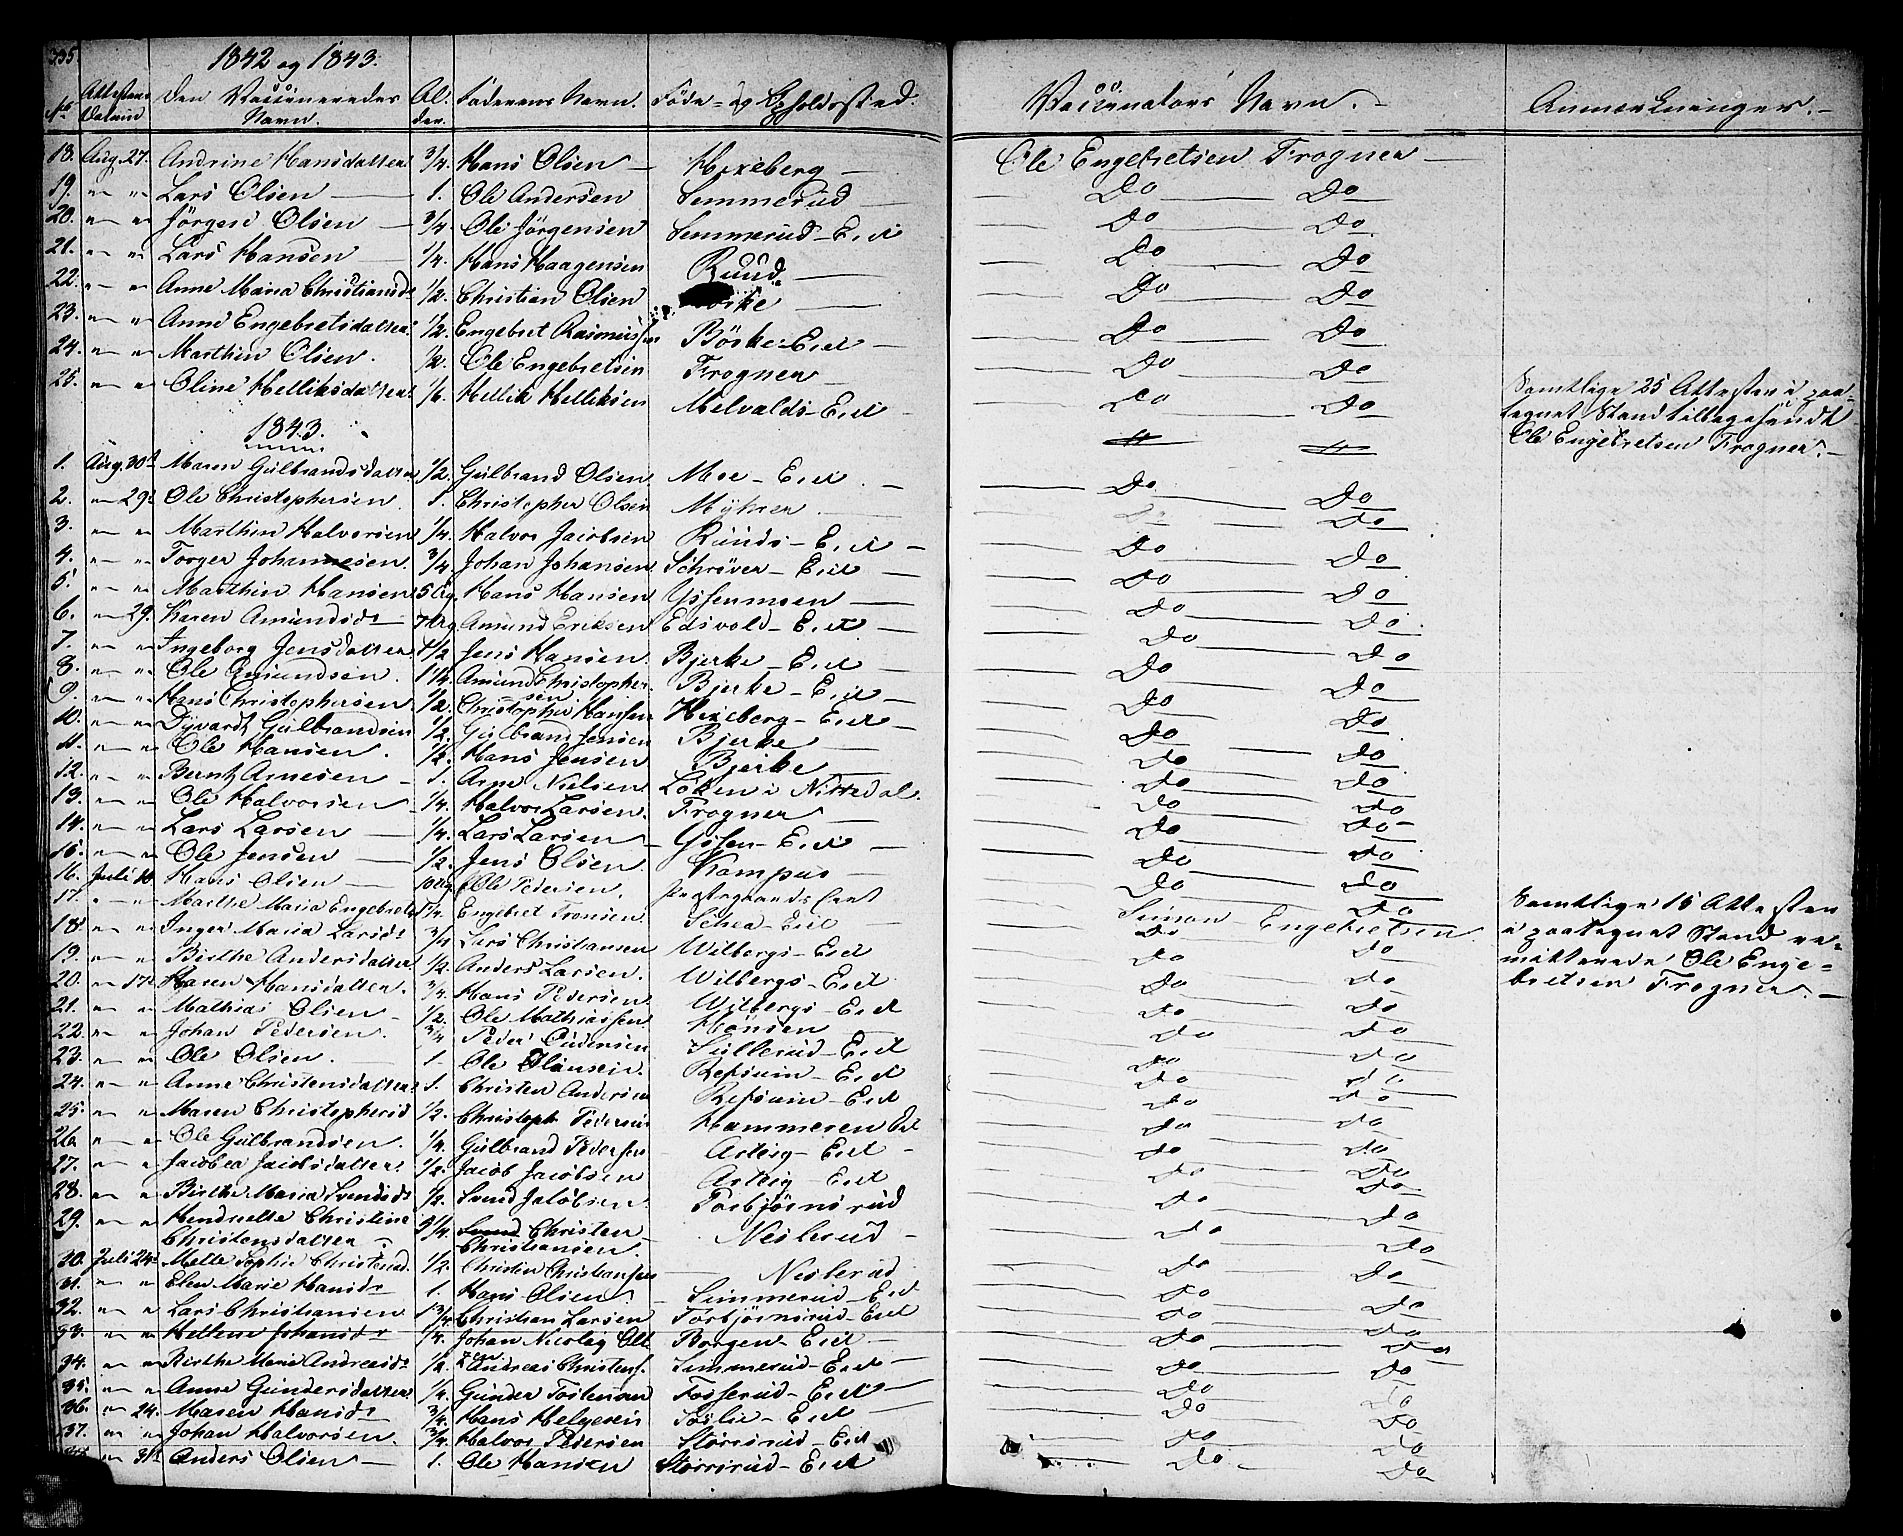 335
1842 og 1843.
No Attestens Datum Den Vaccineredes Navn. Al- der. Faderens Navn. Føde- og Opholdssted. Vaccinateurs Navn. Anmærkninger.
18. Aug. 27. Andrine Hansdatter 3/4. Hans Olsen Hexeberg Ole Engebretsen Frogner
19. " " Lars Olsen 1. Ole Andersen Semmerud Do Do
20. " " Jörgen Olsen 3/4. Ole Jörgensen Semmerud-Eiet Do Do
21. " " Lars Hansen 1/4. Hans Haagensen Ruud Do Do
22. " " Anne Maria Christiansd. 1/2. Christian Olsen Börke Do Do
23. " " Anne Engebretsdatter 1/2. Engebret Rasmussen Börke-Eiet Do Do
24. " " Marthin Olsen. 1/2. Ole Engebretsen Frogner Do Do
25. " " Oline Helliksdatter 1/6. Hellik Helliksen Melvolds-Eiet Do Do
Samtlige 25 Attester i paa-
tegnet Stand tilbagesendt
Ole Engebretsen Frogner.
1843.
1. Aug. 30t Maren Gulbrandsdatter 1/2. Gulbrand Olsen Moe-Eiet Do Do
2. " 29. Ole Christophersen 1. Christopher Olsen Myhrer Do Do
3. " " Marthin Halvorsen 1/4. Halvor Jacobsen Ruuds-Eiet Do Do
4. " " Torger Johannesen 3/4. Johan Johansen Schröver-Eiet Do Do
5. " " Marthin Hansen 5 Ug. Hans Hansen Yssenmoen Do Do
6. " 29. Karen Amundsd. 7 Ug. Amund Eriksen Edsvold-Eiet Do Do
7. " " Ingeborg Jensdatter 1/2 Jens Hansen. Bjerke-Eiet Do Do
8. " " Ole Amundsen. 1 1/4. Amund Christopher- sen Bjerke-Eiet Do Do
9. " " Hans Christophersen 1/2. Christopher Hansen Hexeberg-Eiet Do Do
10. " " Syvardt Gulbrandsen 1/2. Gulbrand Jensen Bjerke Do Do
11. " " Ole Hansen. 1/2. Hans Jensen Bjerke Do Do
12. " " Berntz Arnesen 1. Arne Nielsen Löken i Nittedal. Do Do
13. " " Ole Halvorsen 1/4. Halvor Larsen. Frogner Do Do
14. " " Lars Larsen 1/4. Lars Larsen Yssen-Eiet Do Do
15. " " Ole Jensen 1/2. Jens Olsen. Kampus Do Do
16. Juli Hans Olsen 10 Ug. Ole Pedersen. Præstegaards Eiet Do Do
Samtlige 15 Attester
i paategnet Stand re-
mitterede Ole Enge-
bretsen Frogner.
17. " " Marthe Maria Engebretsd 1 1/4. Engebret Tronsen. Schea-Eiet Simon Engebretsen
18. " " Inger Maria Larsd. 3/4. Lars Christiansen Wilbergs-Eiet Do Do
19. " " Birthe Andersdatter 1/2. Anders Larsen. Wilbergs-Eiet Do Do
20. " 17. Karen Hansdatter. 3/4. Hans Pedersen Wilbergs-Eiet Do Do
21. " " Mathias Olsen 1/2. Ole Mathiassen Hönsen Do Do
22. " " Johan Pedersen. 3/4 Peder Sullerud-Eiet Do Do
23. " " Ole Olsen. 1 Ole Refsum-Eiet Do Do
24. " " Anne Christensdatter 1. Christen Andersen Refsum-Eiet Do Do
25. " " Maren Christophersd 1/2. Christoph. Pedersen Hammeren Eiet Do Do
26. " " Ole Gulbrandsen. 1/4. Gulbrand Pedersen Arteig-Eiet Do Do
27. " " Jacobea Jacobsdatter 1/2. Jacob Jacobsen Arteig-Eiet Do Do
28. " " Birthe Maria Svendsd. 1/2. Svend Jacobsen. Torbjørnsrud Do Do
29. " " Hendriette Christine Christensdatter 3/4. Svend Christen Christiansen. Neslerud Do Do
30. Juli 24 Mette Sophie Christensd. 1/2. Christen Christiansen Neslerud Do Do
31. " " Elen Marie Hansd. 1. Hans Olsen. Simmerud-Eiet Do Do
32. " " Lars Christiansen 1 3/4. Christian Larsen Torbjørnsrud-Eiet Do Do
33. " " Hellene Johansd. 1/4. Johan Nicolay Olsen Borgen-Eiet Do Do
34. " " Birthe Marie Andreasd. 1/2. Andreas Christens. Simmerud-Eiet Do Do
35. " " Anne Gundersdatter 1/4. Gunder Tostensen Fosserud-Eiet Do Do
36. " 24. Maren Hansd. 3/4. Hans Helgesen Toslie-Eiet Do Do
37. " " Johan Halvorsen. 3/4. Halvor Pedersen Störrsrud-Eiet Do Do
" 31t Anders Olsen 1. Ole Hansen Störrsrud-Eiet Do Do